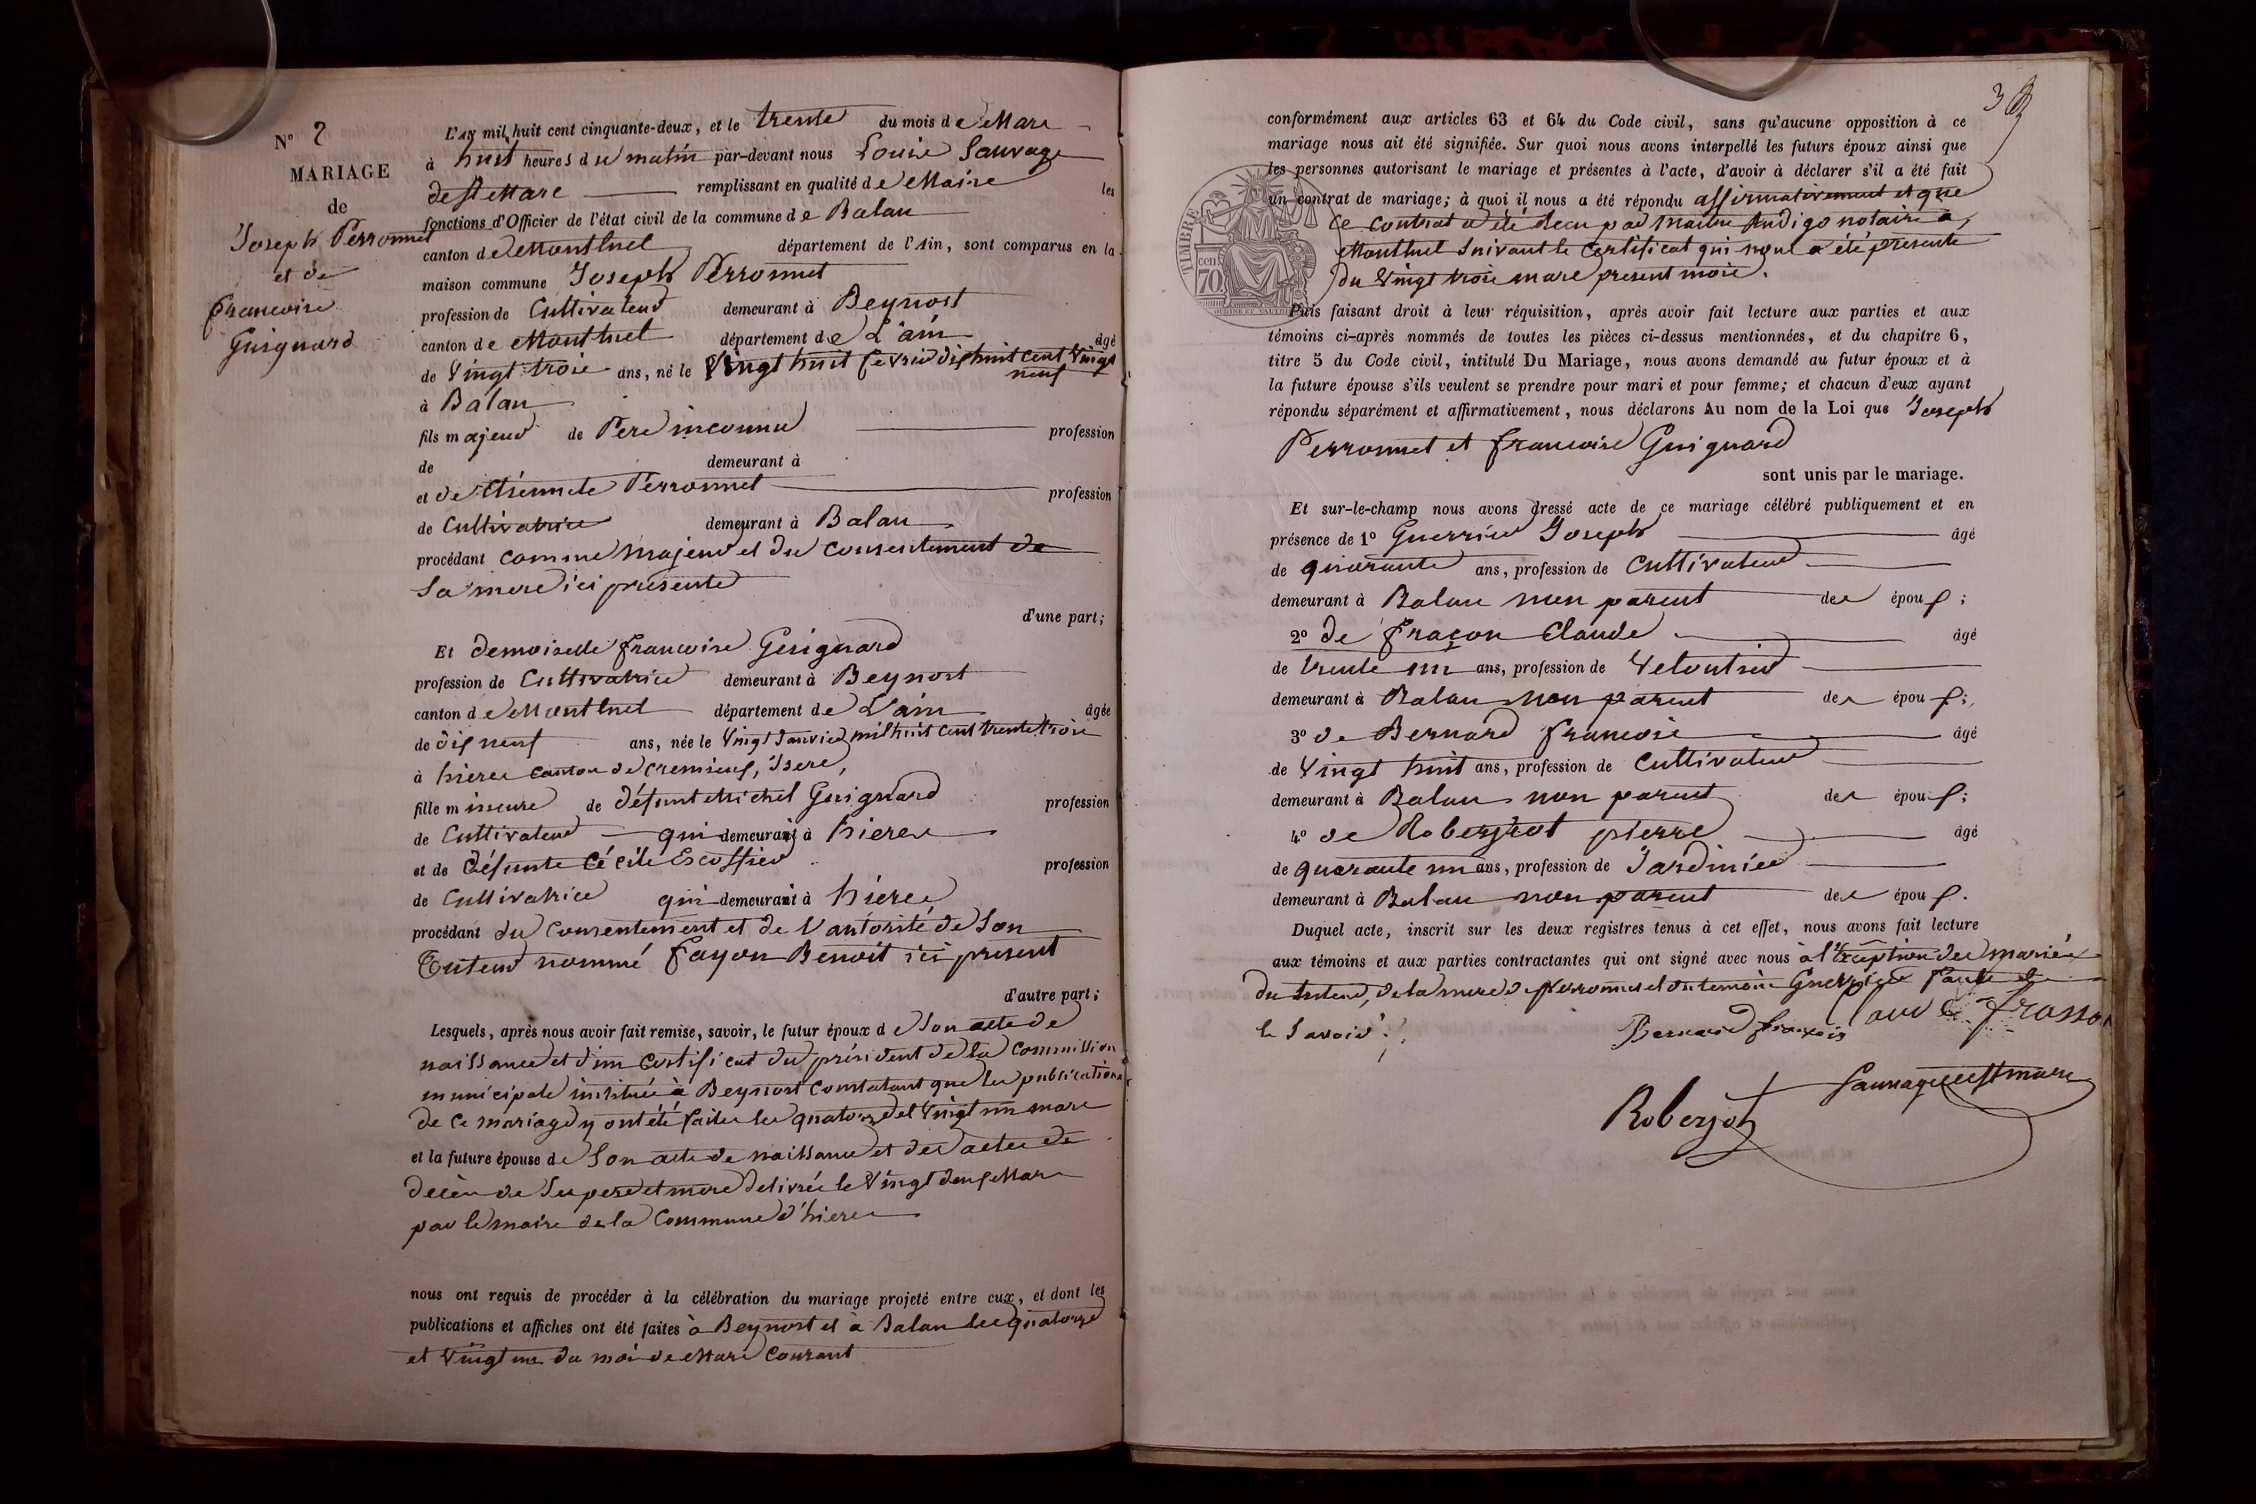 N° 2
MARIAGE
de
Joseph Perronnet
et de
francoise
Guignard
L'an mil huit cent cinquante-deux, et le trente du mois de Mars
à huit heures du matin par-devant nous Louis Sauvage
de St Mars remplissant en qualité de Maire les
fonctions d'Officier de l'état civil de la commune de Balan
canton de Montluel département de l'Ain, sont comparus en la
maison commune Joseph Perronnet
profession de Cultivateur demeurant à Beynost
canton de Montluel département de L'ain âgé
de Vingt trois ans, né le Vingt huit fevrier dix huit cent Vingt
neuf
à Balan
fils majeur de Pere inconnu profession
de demeurant à
et de Etiennete Perronnet profession
de Cultivatrice demeurant à Balan
procédant comme majeur et du consentement de
Sa mere ici présente
d'une part;
Et demoiselle francoise Guignard
profession de Cultivatrice demeurant à Beynost
canton de Montluel département de L'ain âgée
de dix neuf ans, née le Vingt Janvier mil huit cent trente trois
à hieres canton de cremieux, Isere,
fille mineure de défunt Michel Guignard profession
de Cultivateur qui demeurait à hieres
et de défunte Cécile Escoffier profession
de Cultivatrice qui demeurait à hieres
procédant du consentement et de l'autorité de Son
Tuteur nommé fayon Benoit ici présent
d'autre part;
Lesquels, après nous avoir fait remise, savoir, le futur époux de Son acte de
naissance et d'un Certificat du président de la Commission
municipale instituée à Beynost constatant que les publications
de ce mariage y ont été faites les quatorze et Vingt un mars
et la future épouse de Son acte de naissance et des actes de
décès de Ses pere et mere délivrés le Vingt deux Mars
par le maire de la Commune d'hieres
nous ont requis de procéder à la célébration du mariage projeté entre eux, et dont les
publications et affiches ont été faites à Beynost et à Balan les quatorze
et Vingt un du mois de Mars Courant
3
conformément aux articles 63 et 64 du Code civil, sans qu'aucune opposition à ce
mariage nous ait été signifiée. Sur quoi nous avons interpellé les futurs époux ainsi que
les personnes autorisant le mariage et présentes à l'acte, d'avoir à déclarer s'il a été fait
un contrat de mariage; à quoi il nous a été répondu affirmativement et que
Ce contrat a été Recu par Maitre Andigo notaire a
Montluel Suivant le Certificat qui nous a été présenté
du Vingt trois mars present mois.
TIMBRE
cen
70
Puis faisant droit à leur réquisition, après avoir fait lecture aux parties et aux
témoins ci-après nommés de toutes les pièces ci-dessus mentionnées, et du chapitre 6,
titre 5 du Code civil, intitulé Du Mariage, nous avons demandé au futur époux et à
la future épouse s'ils veulent se prendre pour mari et pour femme; et chacun d'eux ayant
répondu séparément et affirmativement, nous déclarons Au nom de la Loi que Joseph
Perronnet et francoise Guignard
sont unis par le mariage.
Et sur-le-champ nous avons dressé acte de ce mariage célébré publiquement et en
présence de 1° Guerrier Joseph âgé
de quarante ans, profession de Cultivateur
demeurant à Balan non parent des époux;
2° de fraçon Claude âgé
de trente un ans, profession de Veloutier
demeurant à Balan non parent des époux;
3° de Bernard francois âgé
de Vingt huit ans, profession de Cultivateur
demeurant à Balan non parent des époux;
4° de Roberjot pierre âgé
de quarante un ans, profession de Jardinier
demeurant à Balan non parent des époux.
Duquel acte, inscrit sur les deux registres tenus à cet effet, nous avons fait lecture
aux témoins et aux parties contractantes qui ont signé avec nous à l'exception des mariés
du tuteur, de la mere de perronnet et du temoin Guerrier faute de
le Savoir.
Bernard françois
Claude frasson
Sauvage de St mars
Roberjot